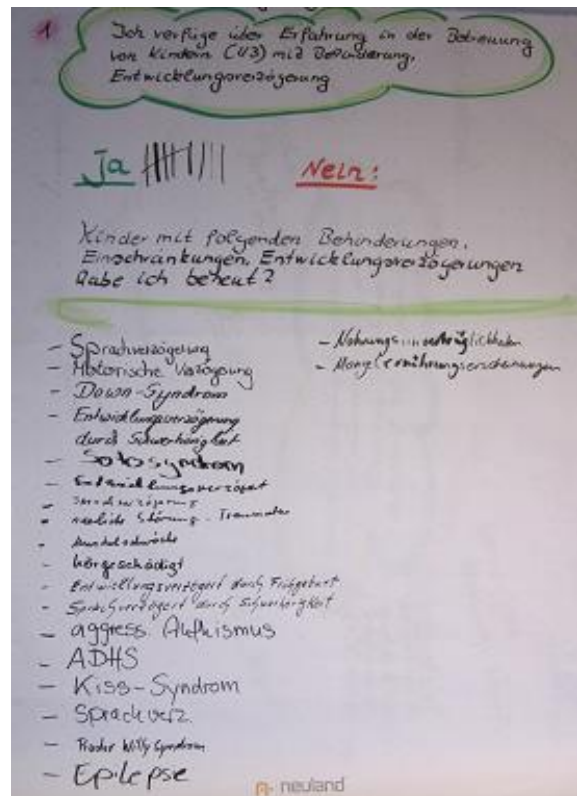 1
Ich verfüge über Erfahrung in der Betreuung
von Kindern (U3) mit Behinderung,
Entwicklungsverzögerung
Ja
Nein:
Kinder mit folgenden Behinderungen,
Einschränkungen, Entwicklungsverzögerungen
habe ich betreut?
- Sprachverzögerung
- Motorische Verzögerung
- Down-Syndrom
- Entwicklungsverzögerung
durch Schwerhörigkeit
- Sotosyndrom
- Entwicklungsverzögert
- Sprachverzögerung
- seelische Störung - Traumata
- Muskelschwäche
- hörgeschädigt
- Entwicklungsverzögert durch Frühgeburt
- Sprachverzögert durch Schwerhörigkeit
- aggress. Authismus
- ADHS
- Kiss-Syndrom
- Sprachverz.
- Prader Willy Syndrom
- Epilepse
- Nahrungsunverträglichkeiten
- Mangelernährungserscheinungen
neuland